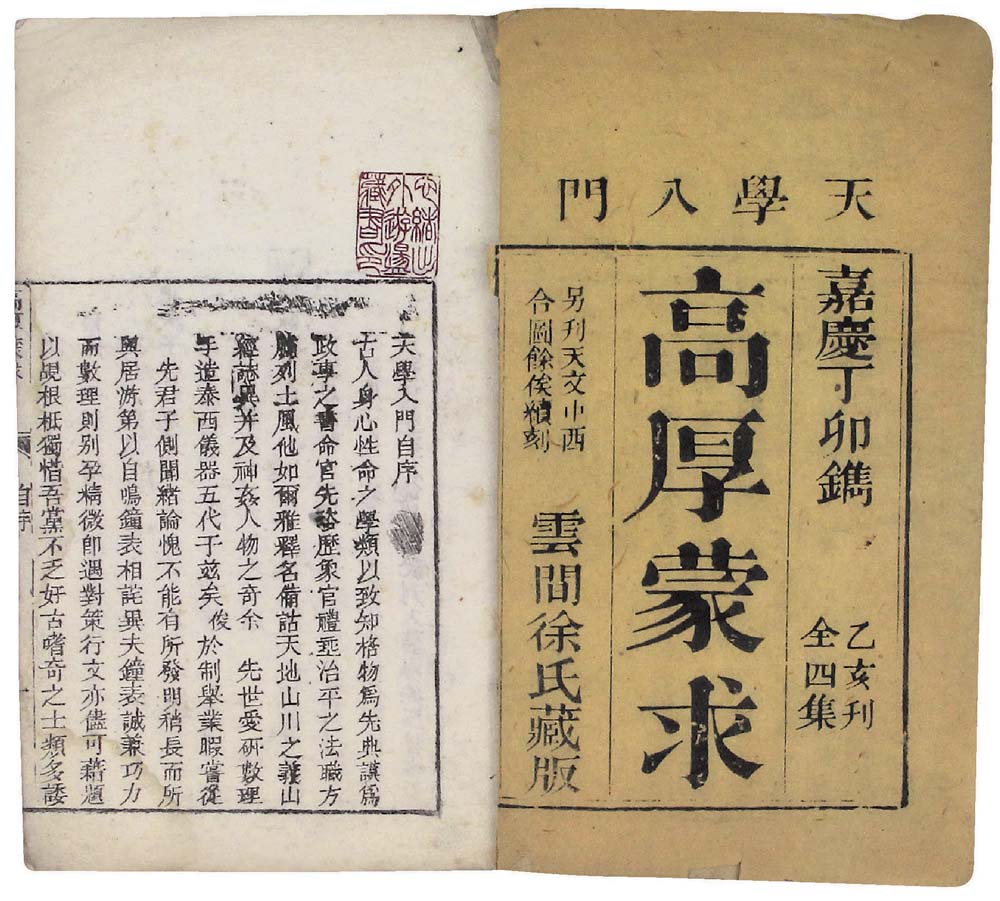 天學入門
嘉慶丁卯鐫
乙亥刊
全四集
高厚蒙求
另刊天文中西
合圖餘俟續刻
雲間徐氏藏版
天學入門自序
古人身心性命之學類以致知格物爲先典謨爲
政事之書命官先咨歷象官禮垂治平之法職方
臚列土風他如爾雅釋名備詁天地山川之義山
經誌異并及神姦人物之奇余　先世愛硏數理
手造泰西儀器五代于玆矣　俊　於制舉業暇嘗從
先君子側聞緒論愧不能有所發明稍長而所
與居游第以自鳴鐘表相詫異夫鐘表誠兼巧力
而數理則别孕精微卽遇對策行文亦儘可藉題
以覘根柢獨惜吾黨不乏好古嗜奇之士類多諉
自序
外遊
藏書